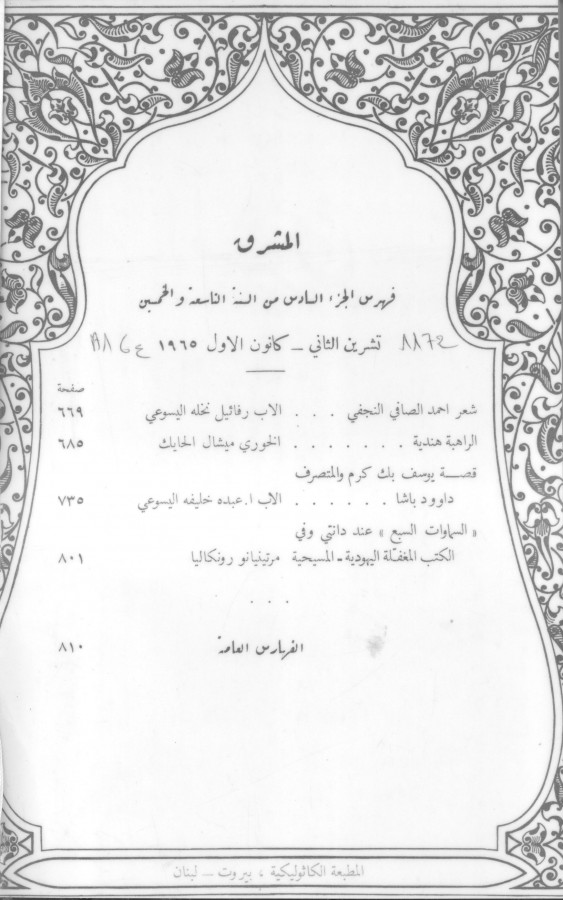 المشرق
فهرس الجزء السادس من السنة التاسعة والخمسين
تشرين الثاني – كانون الاول ١٩٦٥
صفحة
شعر احمد الصافي النجفي . . . الاب رفائيل نخله اليسوعي ٦٦٩
الراهبة هندية . . . . . . . الخوري ميشال الحايك ٦٨٥
قصة يوسف بك كرم والمتصرف
داوود باشا . . . . . . الاب ا. عبده خليفه اليسوعي ٧٣٥
« السماوات السبع » عند دانتي وفي
الكتب المغفلة اليهودية – المسيحية مرتينيانو رونكاليا ٨٠١
. . .
الفهارس العامة ٨١٠
المطبعة الكاثوليكية ، بيروت – لبنان